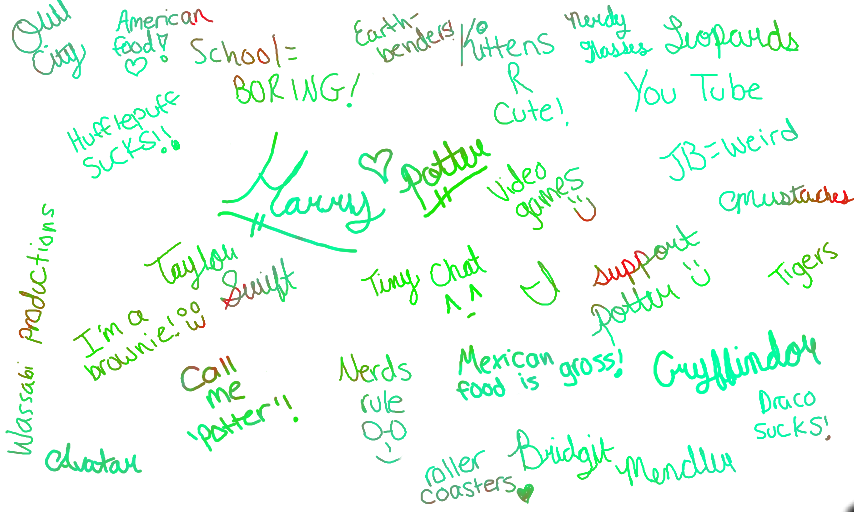 Quil
City
American
food!
School=
BORING!
Earth-
benders
Kittens
R
Cute!
Nerdy
glasses
Leopards
You Tube
Hufflepuff
SUCKS!!
Harry
Potter
Video
games
JB=Weird
Mustaches
Taylor
Swift
Tiny Chat
^ ^
support
potter
Tigers
Wassabi Productions
I'm a
brownie!
Call
me
'potter'!
Nerds
rule
O-O
Mexican
food is gross!
Gryffindor
Draco
SUCKS!
Avatar
roller
coasters
Bridgit Mendler